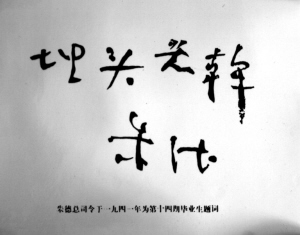 埋头苦幹
朱德
朱德总司令于一九四一年为第十四期毕业生题词